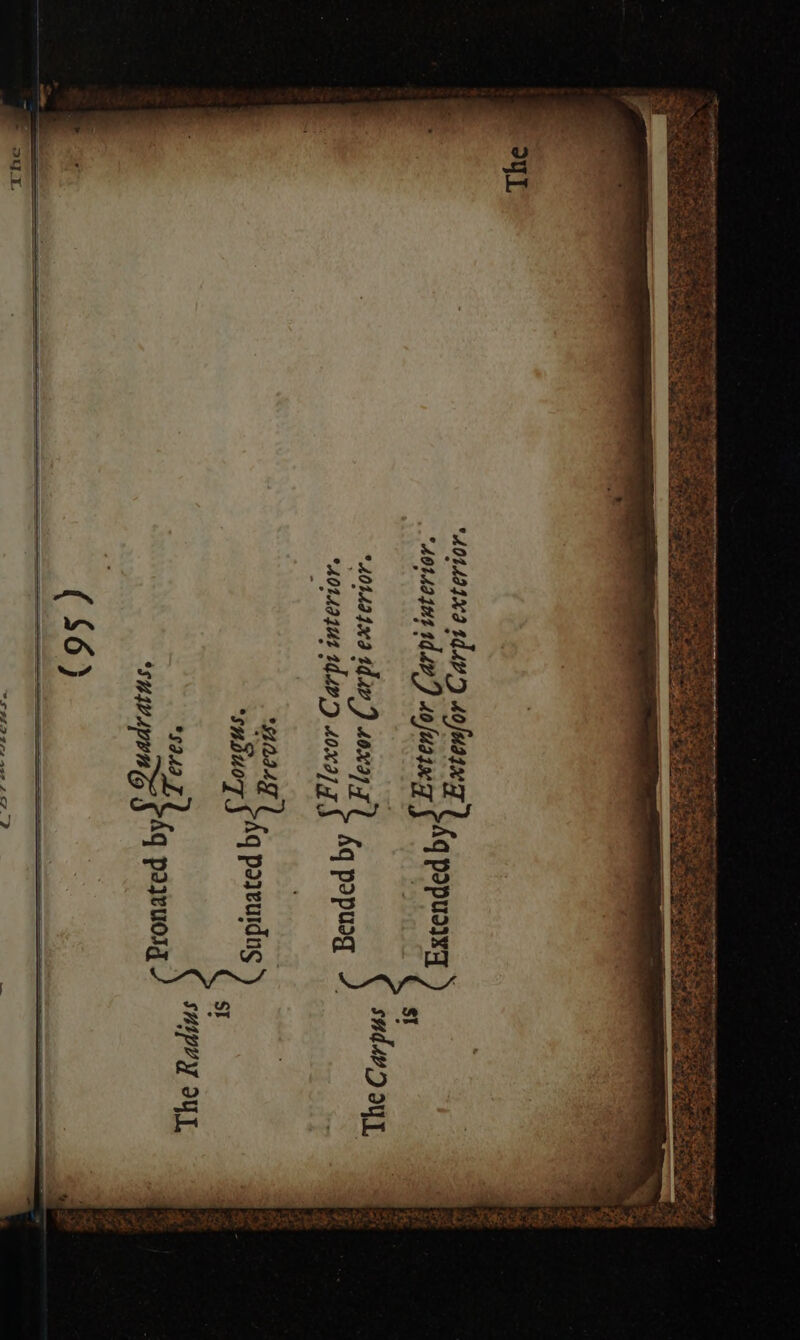 (95)
Quadratus.
Pronated by
Teres.
The Radius
is
Longus.
Supinated by
Brevis.
Flexor Carpi interior.
Bended by
Flexor Carpi exterior.
The Carpus
is
Extenſor Carpi interior.
Extended by
Extenſor Carpi exterior.
The